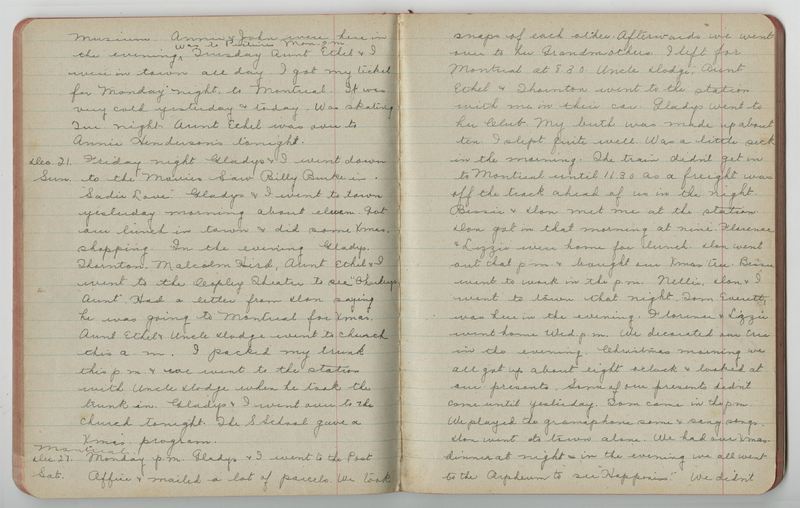 museum. Annie & John were here in
the evening. Tuesday Aunt Ethel & I
Was to Movies Mon. p.m.
were in town all day. I got my ticket
for Monday night to Montreal. It was
very cold yesterday & today. Was skating
Tue night. Aunt Ethel was over to
Annie Henderson's tonight.
Dec. 21. Friday night Gladys & I went down
Sun. to the Movies. Saw Billy Burke in
"Sadie Love." Gladys & I went to town
yesterday morning about eleven. Got
our lunch in town & did some Xmas.
shopping. In the evening Gladys,
Thornton, Malcolm Hird, Aunt Ethel & I
went to the Copley Theater to see "Charleys
Aunt" Had a letter from Don saying
he was going to Montreal for Xmas.
Aunt Ethel & Uncle Dodge went to church
this a m. I packed my trunk
this p m & we went to the station
with Uncle Dodge when he took the
trunk in. Gladys & I went over to the
church tonight. The S School gave a
Xmas. program.
Montreal
Dec. 27. Monday p.m. Gladys & I went to the Post
Sat. Office & mailed a lot of parcels. We took
snaps of each other. Afterwards we went
over to her Grandmothers. I left for
Montreal at 8.30. Uncle Dodge, Aunt
Ethel & Thornton went to the station
with me in their car. Gladys went to
her Club. My berth was made up about
ten. I slept quite well. Was a little sick
in the morning. The train didnt get in
to Montreal until 11.30 as a freight was
off the track ahead of us in the night.
Bessie & Don met me at the station
Don got in that morning at nine. Florence
& Lizzie were home for lunch. Don went
out that p m & bought our Xmas tree. Bessie
went to work in the p.m. Nellie, Don & I
went to town that night. Tom Everett
was here in the evening. Florence & Lizzie
went home Wed p m. We decorated our tree
in the evening. Christmas morning we
all got up about eight oclock & looked at
our presents. Some of our presents didn't
come until yesterday. Tom came in the p m.
We played the gramaphone some & sang songs.
Don went to town alone. We had our Xmas
dinner at night & in the evening we all went
to the Orpheum to see "Happiness." We didn't